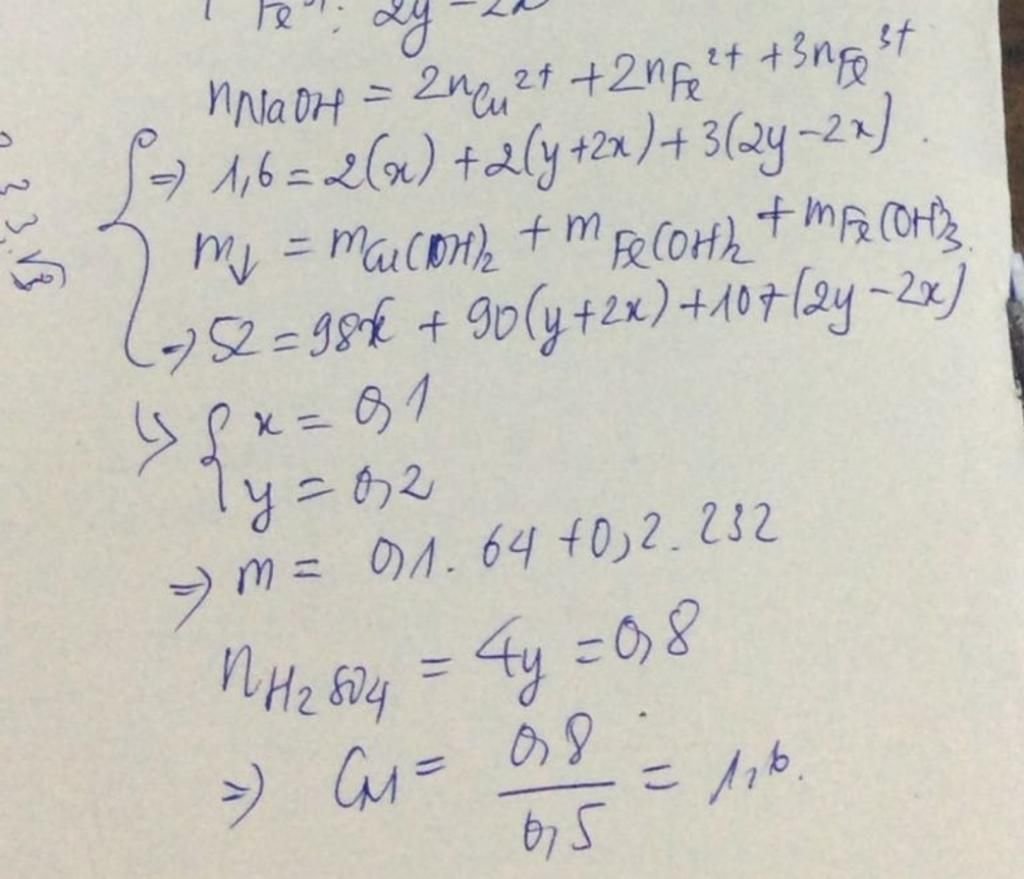 Fe³⁺: 2y - 2x
nNaOH = 2nCu²⁺ + 2nFe²⁺ + 3nFe³⁺
=> 1,6 = 2(x) + 2(y+2x) + 3(2y-2x).
m↓ = mCu(OH)₂ + mFe(OH)₂ + mFe(OH)₃.
=> 52 = 98x + 90(y+2x) + 107(2y-2x)
↳ { x = 0,1
y = 0,2
=> m = 0,1. 64 + 0,2. 232
nH₂SO₄ = 4y = 0,8
=> CM = 0,8/0,5 = 1,6.